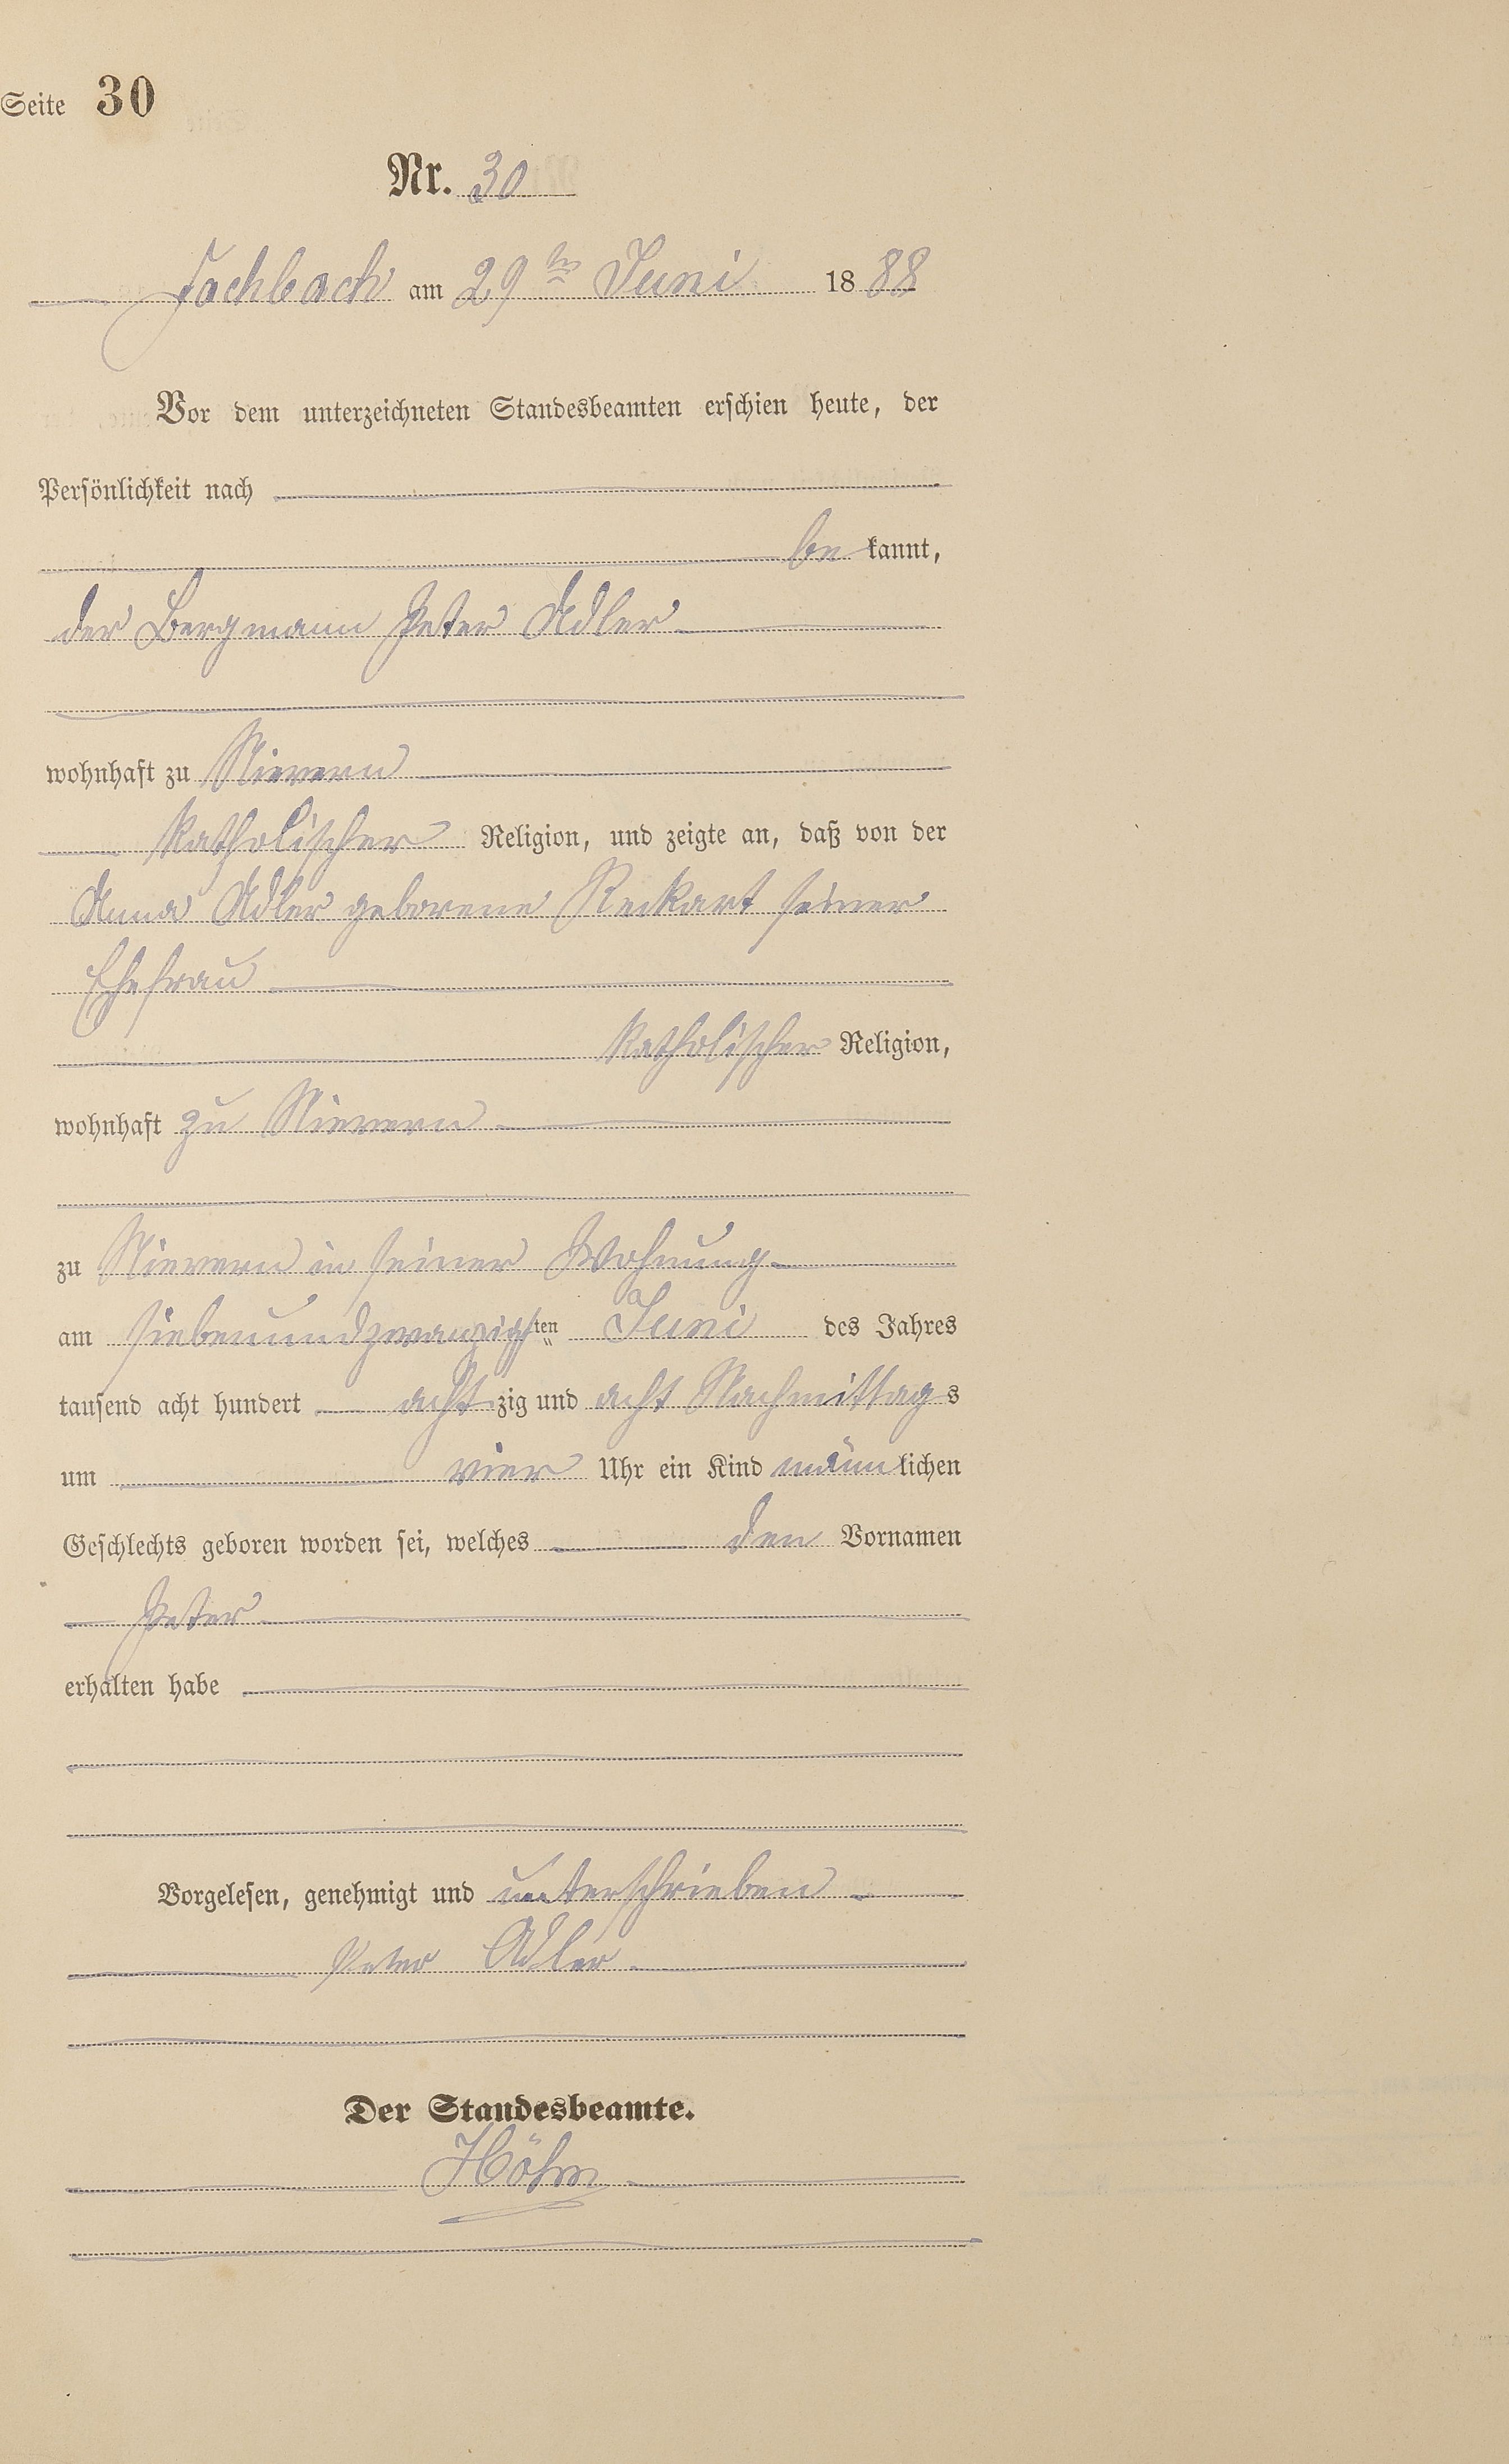 Seite 30
Nr. 30
Fachbach am 29ten Juni 1888
Vor dem unterzeichneten Standesbeamten erschien heute, der
Persönlichkeit nach
be kannt,
der Bergmann Peter Adler
wohnhaft zu Nievern
katholischer Religion, und zeigte an, daß von der
Anna Adler geborene Reckart seiner
Ehefrau
katholischer Religion,
wohnhaft zu Nievern
zu Nievern in seiner Wohnung
am siebenundzwanzigsten Juni des Jahres
tausend acht hundert achtzig und acht Nachmittags
um vier Uhr ein Kind männlichen
Geschlechts geboren worden sei, welches den Vornamen
Peter
erhalten habe
Vorgelesen, genehmigt und unterschrieben
Peter Adler
Der Standesbeamte.
Höhn